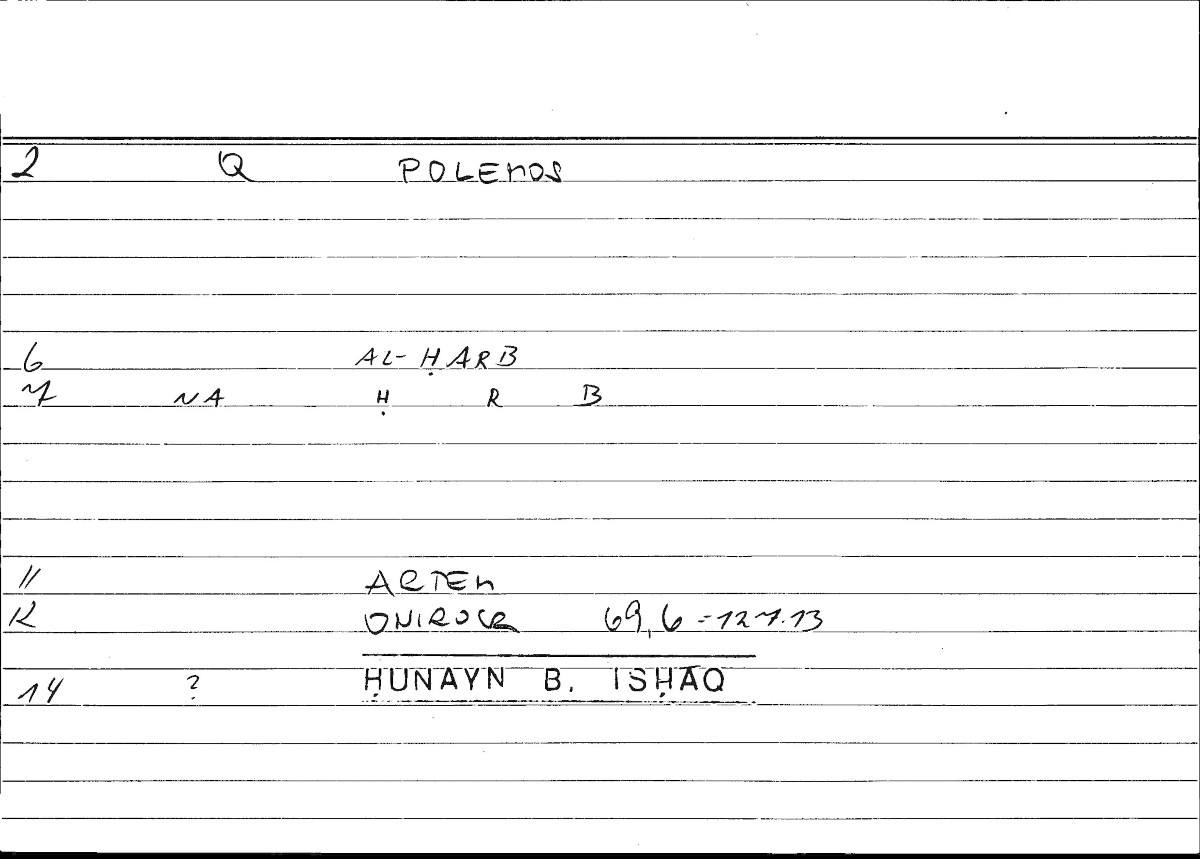 2 Q POLEMOS
6 AL-ḤARB
7 NA Ḥ R B
11 ARTEM
12 ONIROCR 69,6 = 127.13
14 ? ḤUNAYN B. ISḤĀQ